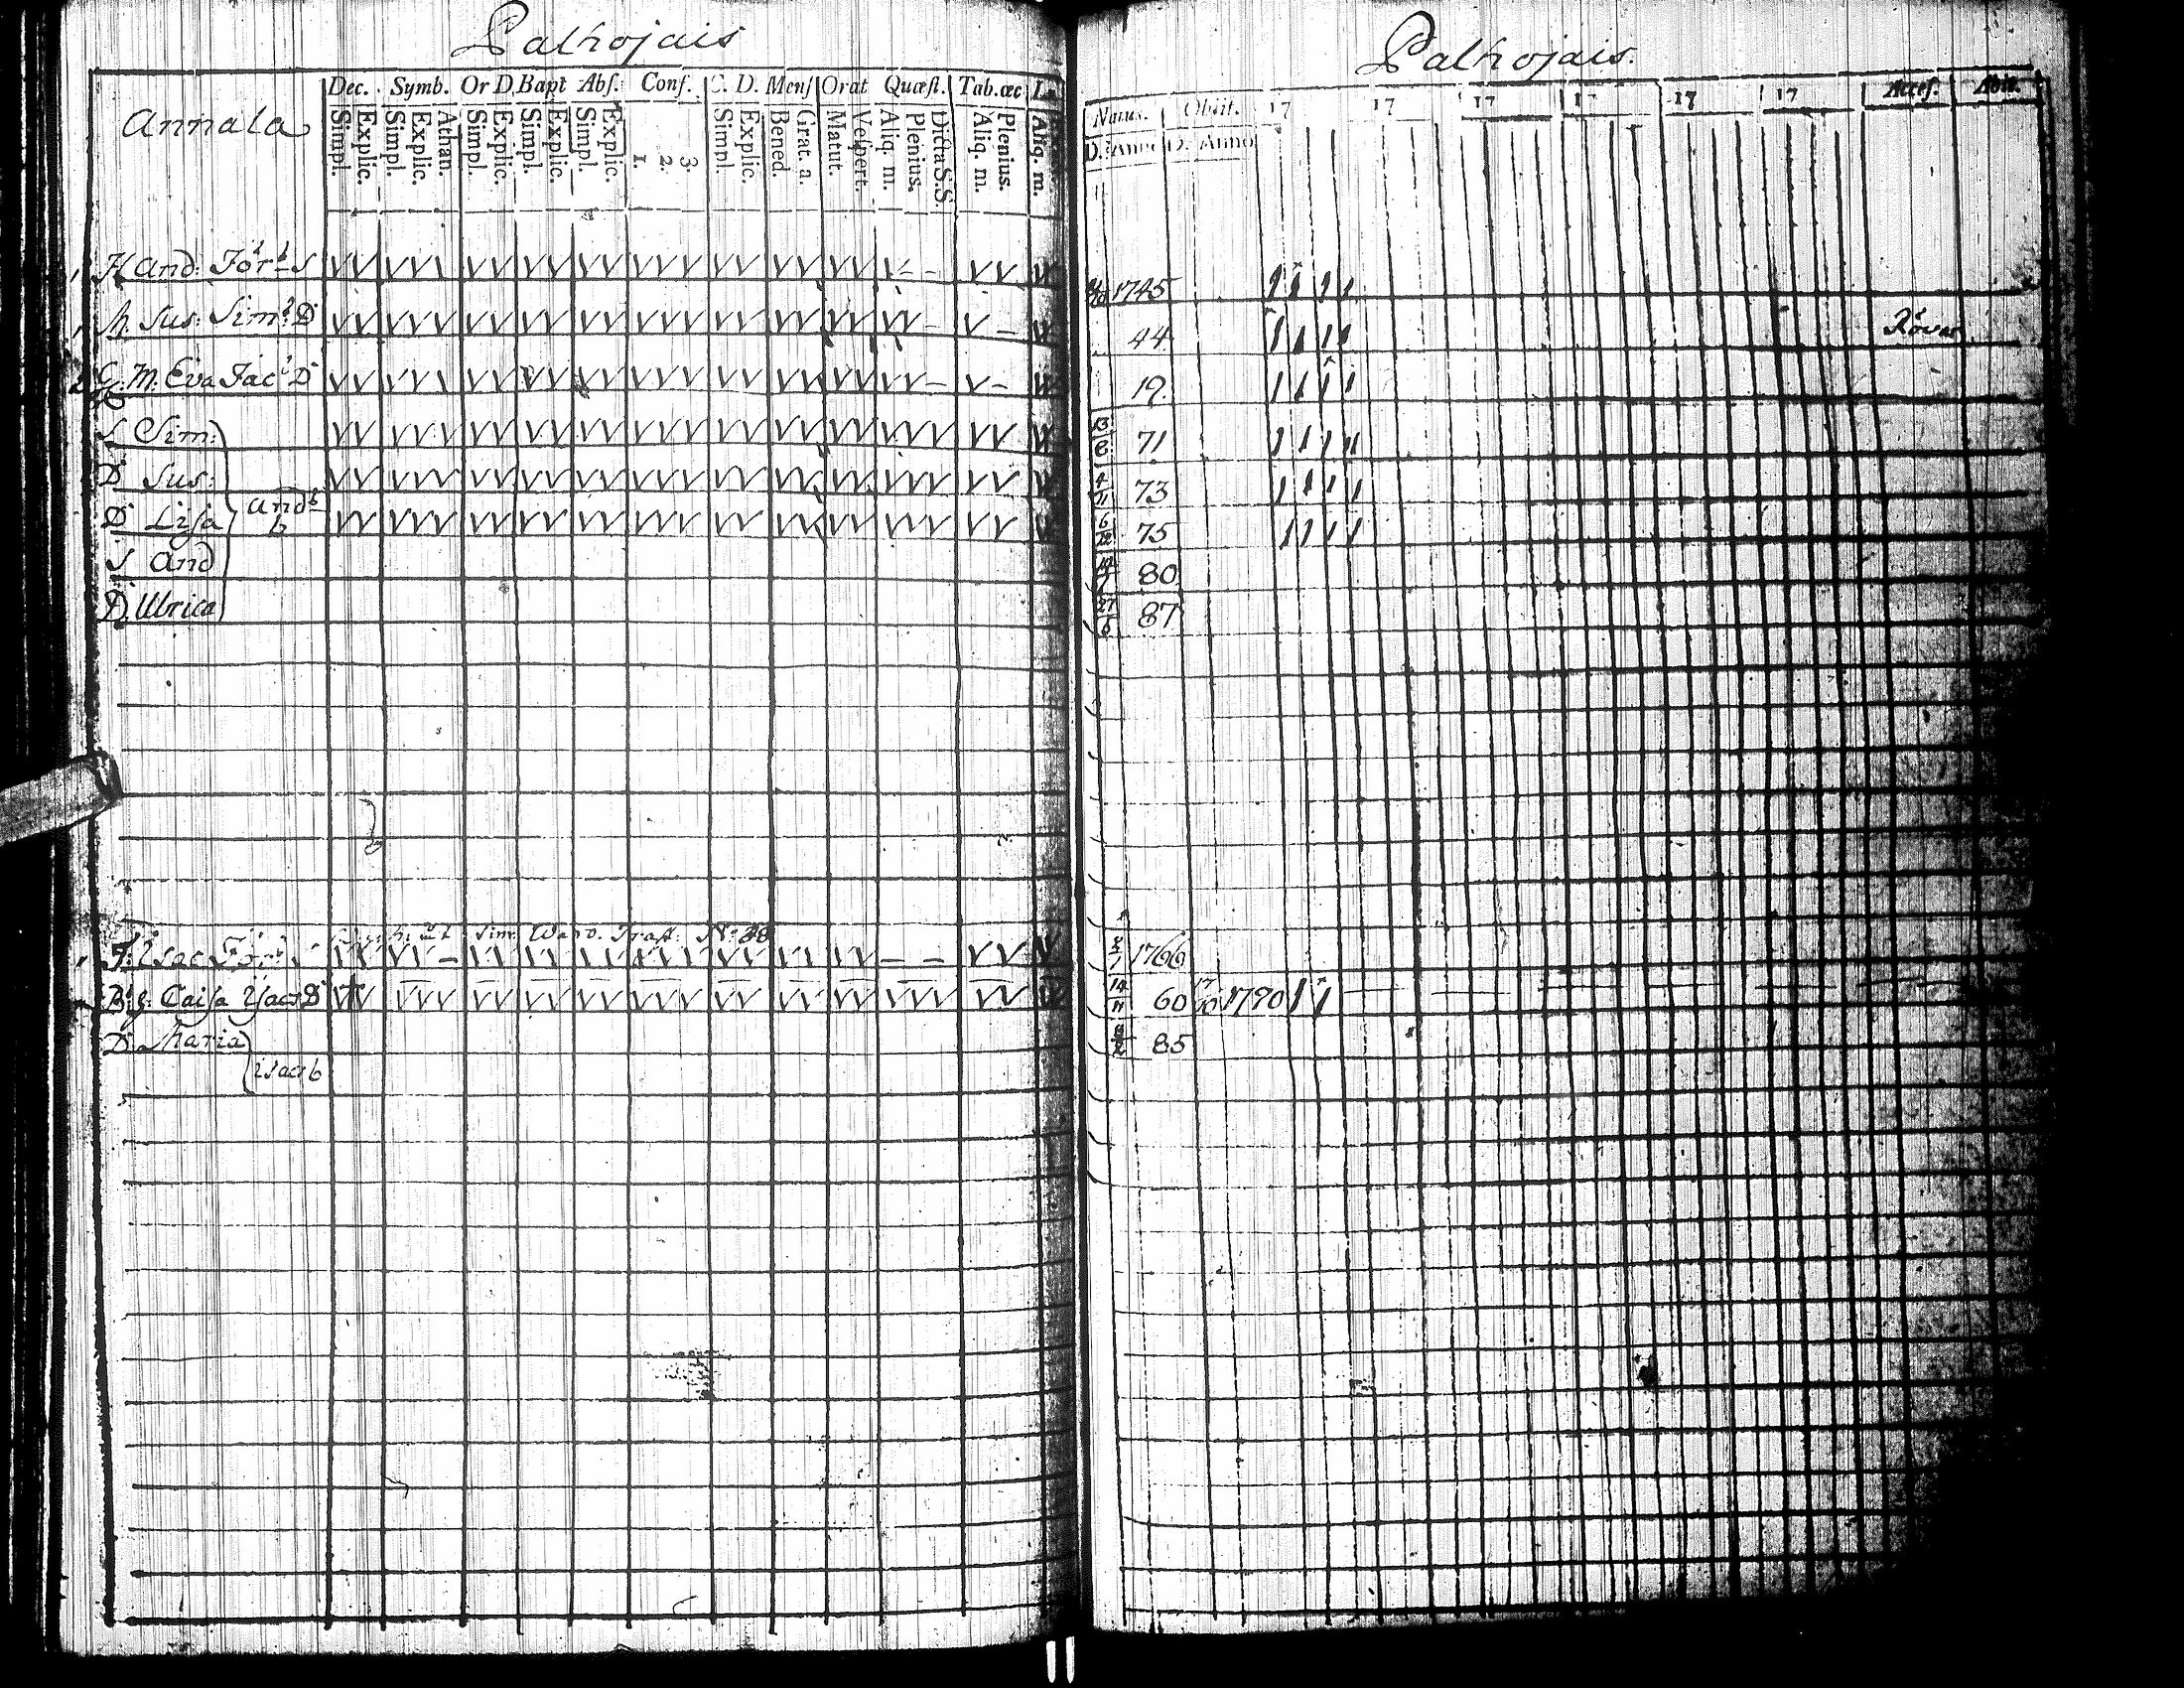 Palhojais
Annala
Dec. Symb. Or D. Bapt Abs: Conf. C. D. Mens Orat Quæst. Tab. œc
Simpl. Explic. Simpl. Explic. Athan. Simpl. Explic. Simpl. Explic. Simpl. Explic. 1. 2. 3. Simpl. Explic. Bened. Grat. a. Matut. Vespert. Aliq. m. Plenius. Dicta S.S. Aliq. m. Plenius. Aliq. m.
H. And:
h. Sus: Sim: D:
G. M. Eva Jac: D:
S Sim:
D: Sus:
D: Lisa
And
S And
D. Ulrica
Isac
Caisa Isacs D:
D: Maria
Palhojais.
Natus. Obiit. 17 17 17 17 17 17 Acces. Abit.
D. Anno D. Anno
1745
44
19
71
4/11 73
75
80
87
1766
14/11 60 1790
85